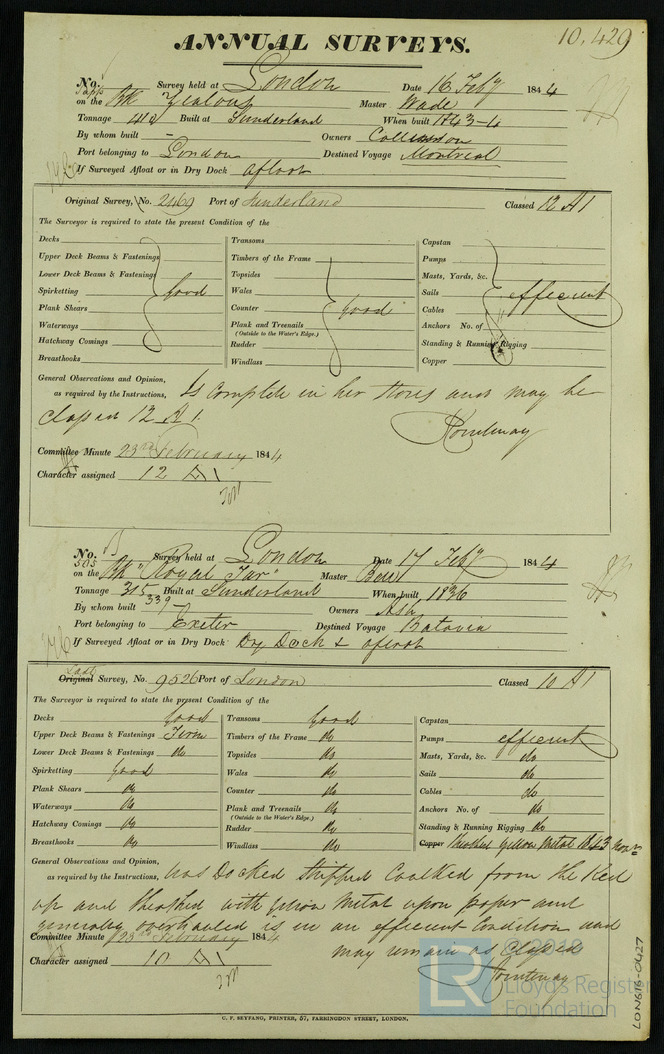 ANNUAL SURVEYS. 10,429
No. Survey held at London Date 16 Feby 1844
on the Bk Zealous Master Wade
Tonnage 419 Built at Sunderland When built 1843-4
By whom built — Owners
Port belonging to London Destined Voyage Montreal
If Surveyed Afloat or in Dry Dock afloat
Original Survey, No. 2469 Port of Sunderland Classed 12 A1
The Surveyor is required to state the present Condition of the
Decks Transoms Capstan
Upper Deck Beams & Fastenings Timbers of the Frame Pumps
Lower Deck Beams & Fastenings Topsides Masts, Yards, &c.
Spirketting Good Wales Sails efficient
Plank Shears Counter Good Cables
Waterways Plank and Treenails Anchors No. of
(Outside to the Water's Edge.)
Hatchway Comings Rudder Standing & Running Rigging
Breasthooks Windlass Copper
General Observations and Opinion,
as required by the Instructions, Is complete in her stores and may be
classed 12 A1.
Committee Minute 23rd February 1844
Character assigned 12 A1
No. 505 Survey held at London Date 17 Feby 1844
on the Bk "Royal Tar" Master Bell
Tonnage 315 Built at Sunderland When built 1836
339
By whom built — Owners Ash
Port belonging to Exeter Destined Voyage Batavia
If Surveyed Afloat or in Dry Dock Dry Dock & afloat
Last
Original Survey, No. 9526 Port of London Classed 10 A1
The Surveyor is required to state the present Condition of the
Decks Good Transoms Good Capstan
Upper Deck Beams & Fastenings Firm Timbers of the Frame do Pumps efficient
Lower Deck Beams & Fastenings do Topsides do Masts, Yards, &c. do
Spirketting Good Wales do Sails do
Plank Shears do Counter do Cables do
Waterways do Plank and Treenails do Anchors No. of do
(Outside to the Water's Edge.)
Hatchway Comings do Rudder do Standing & Running Rigging do
Breasthooks do Windlass do Copper sheathed yellow metal 1843
General Observations and Opinion,
as required by the Instructions, was Docked stripped Caulked from the Keel
up and sheathed with yellow metal upon paper and
generally overhauled is in an efficient Condition and
Committee Minute 23rd February 1844 may remain as classed
Character assigned 10 A1
C. F. SEYFANG, PRINTER, 57, FARRINGDON STREET, LONDON.
LON616-0427
LR
Lloyd's Register
Foundation